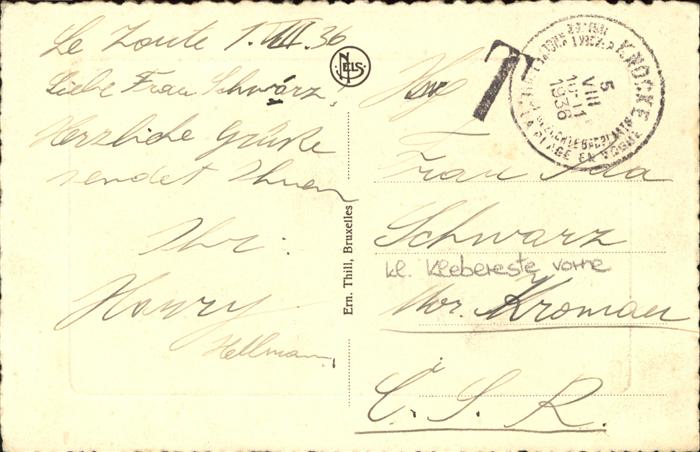 Le Zoute 1.VIII.36
Liebe Frau Schwarz,
Herzliche Grüße
sendet Ihnen
Ihr.
Henry
Hellmann
NELS
Ern. Thill, Bruxelles
T
KNOCKE
5
VIII
10-11
1936
LA PLAGE EN VOGUE
Frau Ida
Schwarz
kl. Klebereste vorne
Mor. Kromau
Č.S.R.